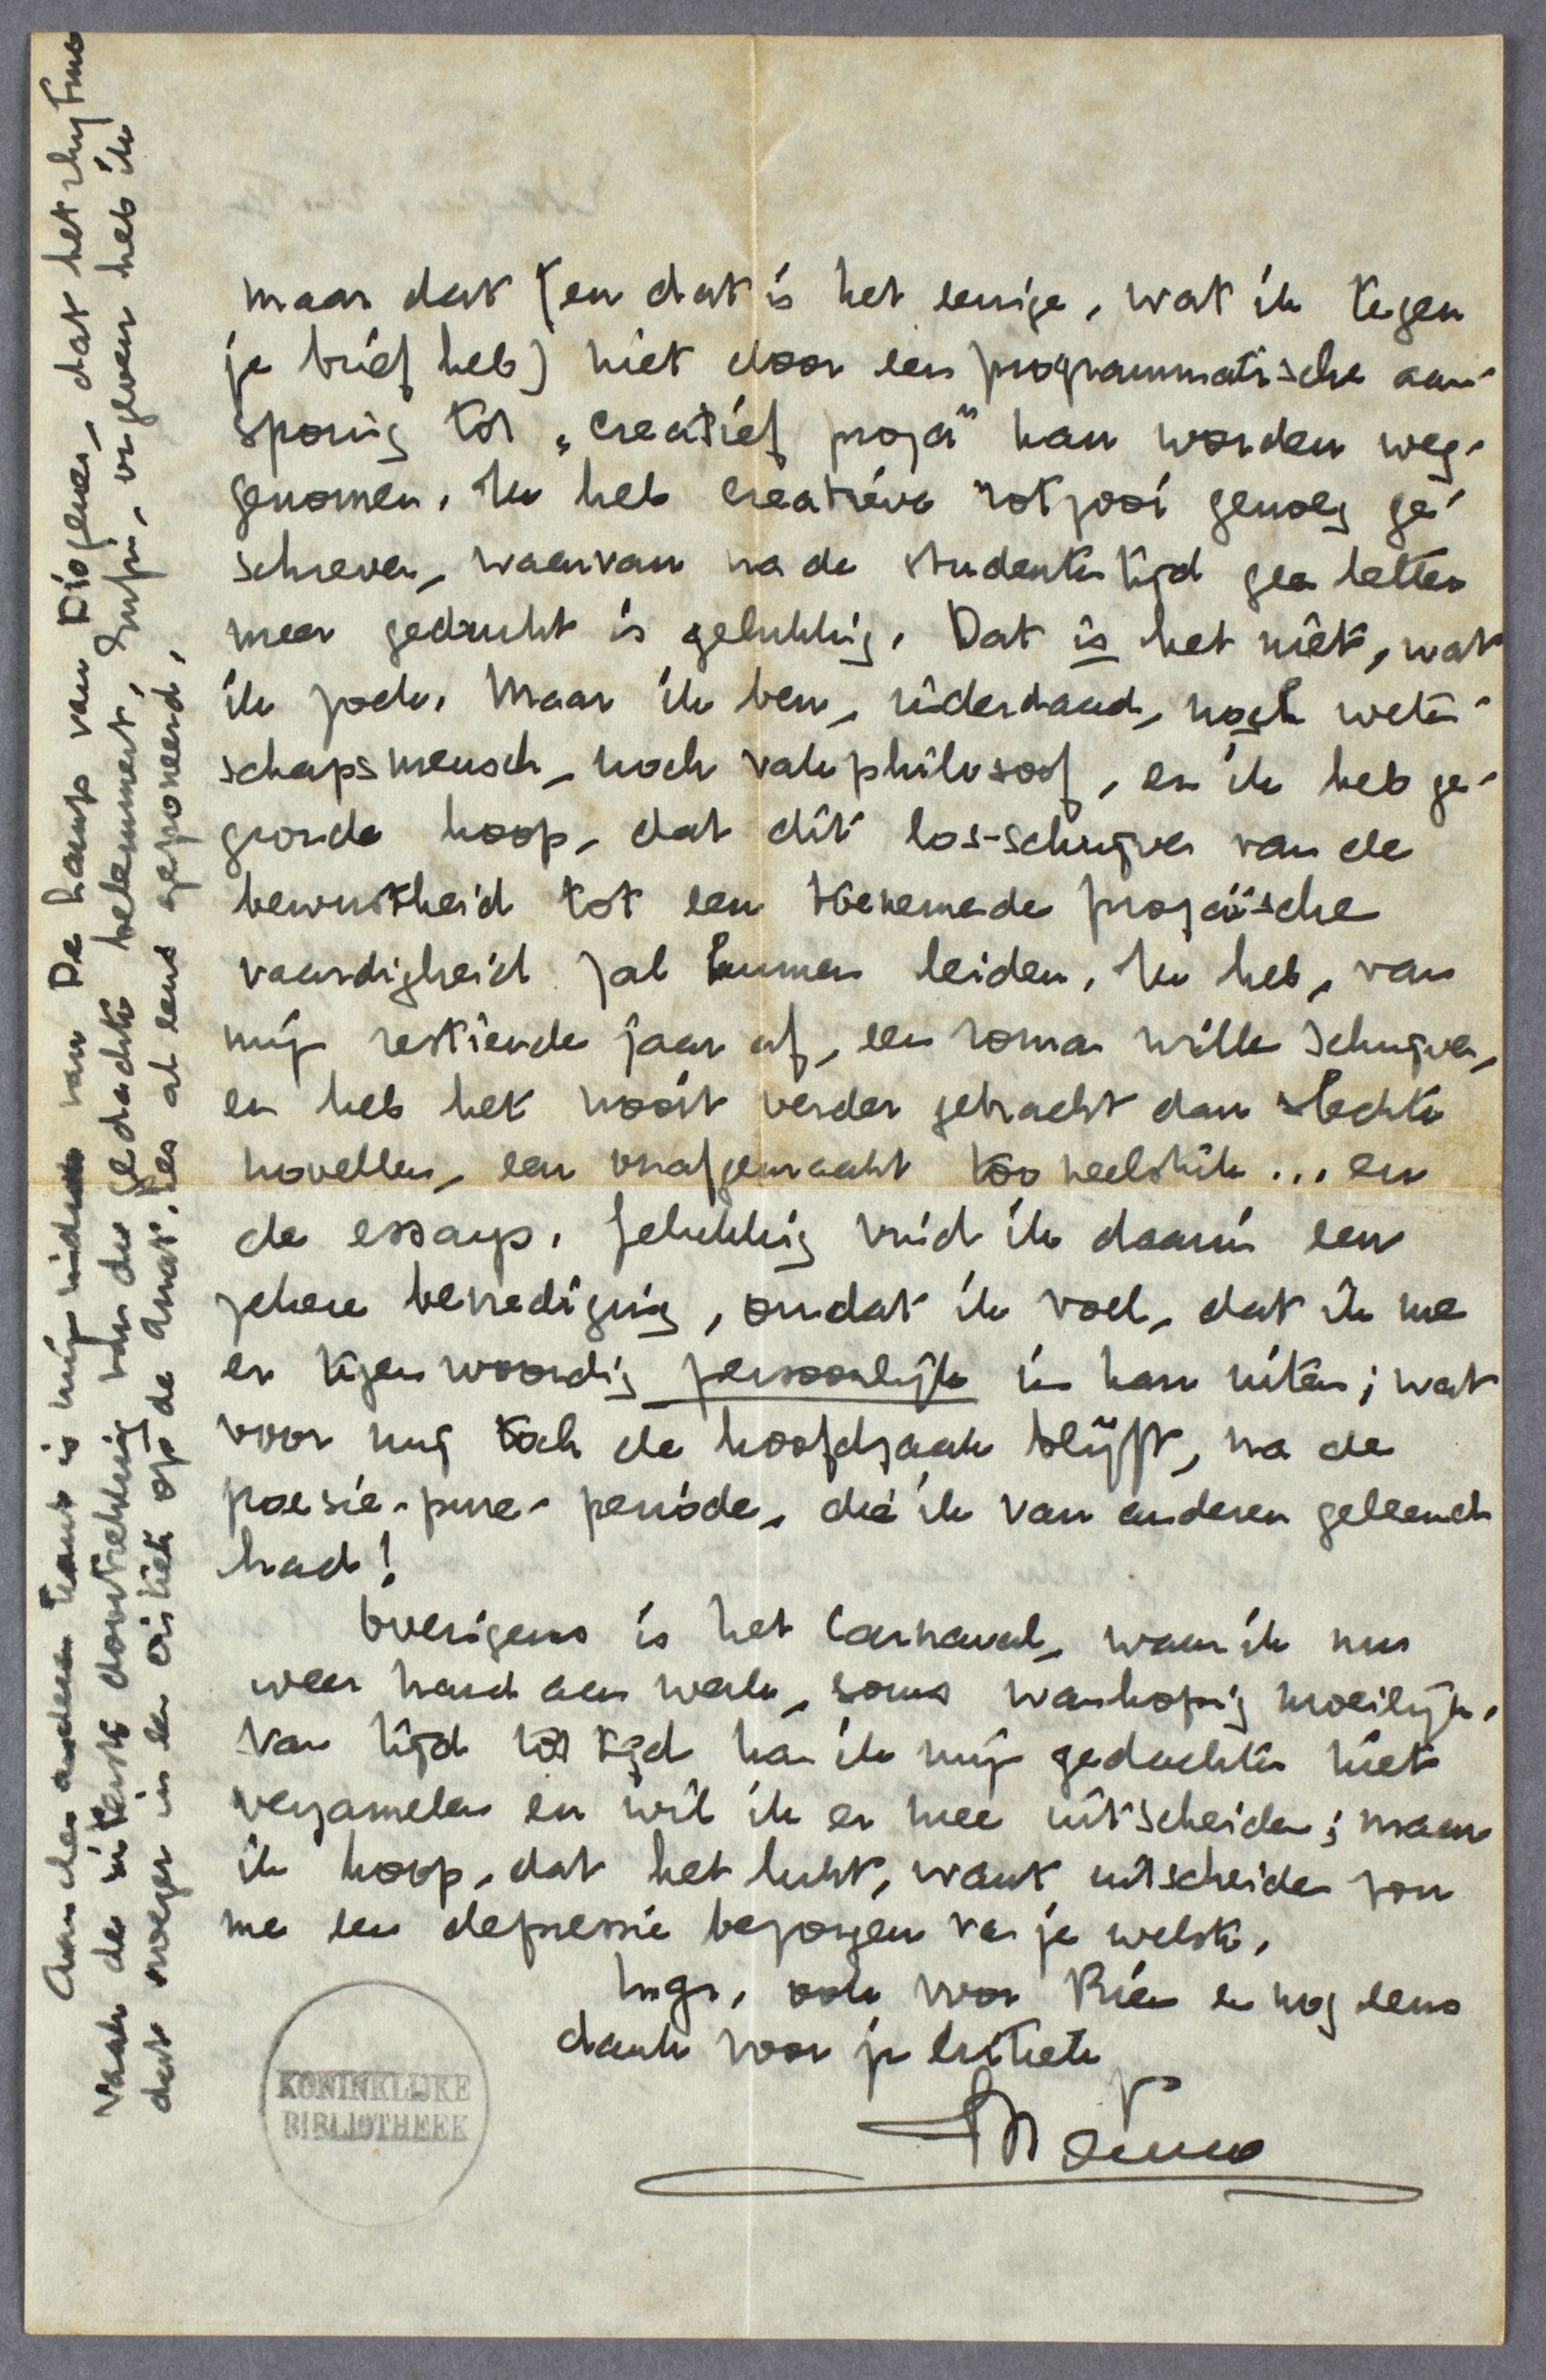 maar dat (en dat is het eenige, wat ik tegen
je brief heb) niet door een programmatische aan-
sporing tot „creatief proza" kan worden weg-
genomen. Ik heb creatieve rotzooi genoeg ge-
schreven, waarvan na de studententijd geen letter
meer gedrukt is gelukkig. Dat is het niet, wat
ik zoek. Maar ik ben, inderdaad, noch weten-
schapsmensch, noch vakphilosoof, en ik heb ge-
gronde hoop, dat dit los-schrijven van de
bewustheid tot een toenemende prozaïsche
vaardigheid zal kunnen leiden. Ik heb, van
mijn zestiende jaar af, een roman willen schrijven,
en heb het nooit verder gebracht dan slechte
novellen, een onafgemaakt tooneelstuk ... en
de essays. Gelukkig vind ik daarin een
zekere bevrediging, omdat ik voel, dat ik me
er tegenwoordig persoonlijk in kan uiten; wat
voor mij toch de hoofdzaak blijft, na de
poesie-pure-periode, die ik van anderen geleend
had!
Overigens is het Carnaval, waar ik nu
weer hard aan werk, soms wanhopig moeilijk.
Van tijd tot tijd kan ik mijn gedachten niet
verzamelen en wil ik er mee uitscheiden; maar
ik hoop, dat het lukt, want uitscheiden zou
me een depressie bezorgen van je welste.
hrgr., ook voor Rien en nog eens
dank voor je critiek
Menno
KONINKLIJKE
BIBLIOTHEEK
Aan den anderen kant is mijn van De hang van Diogenes, dat het rhythme
vaak de uiterste doortrekking van de gedachte belemmert, Enfin, ongeveer heb ik
dat vroeger in een critiek op de Amat. les al eens geponeerd.